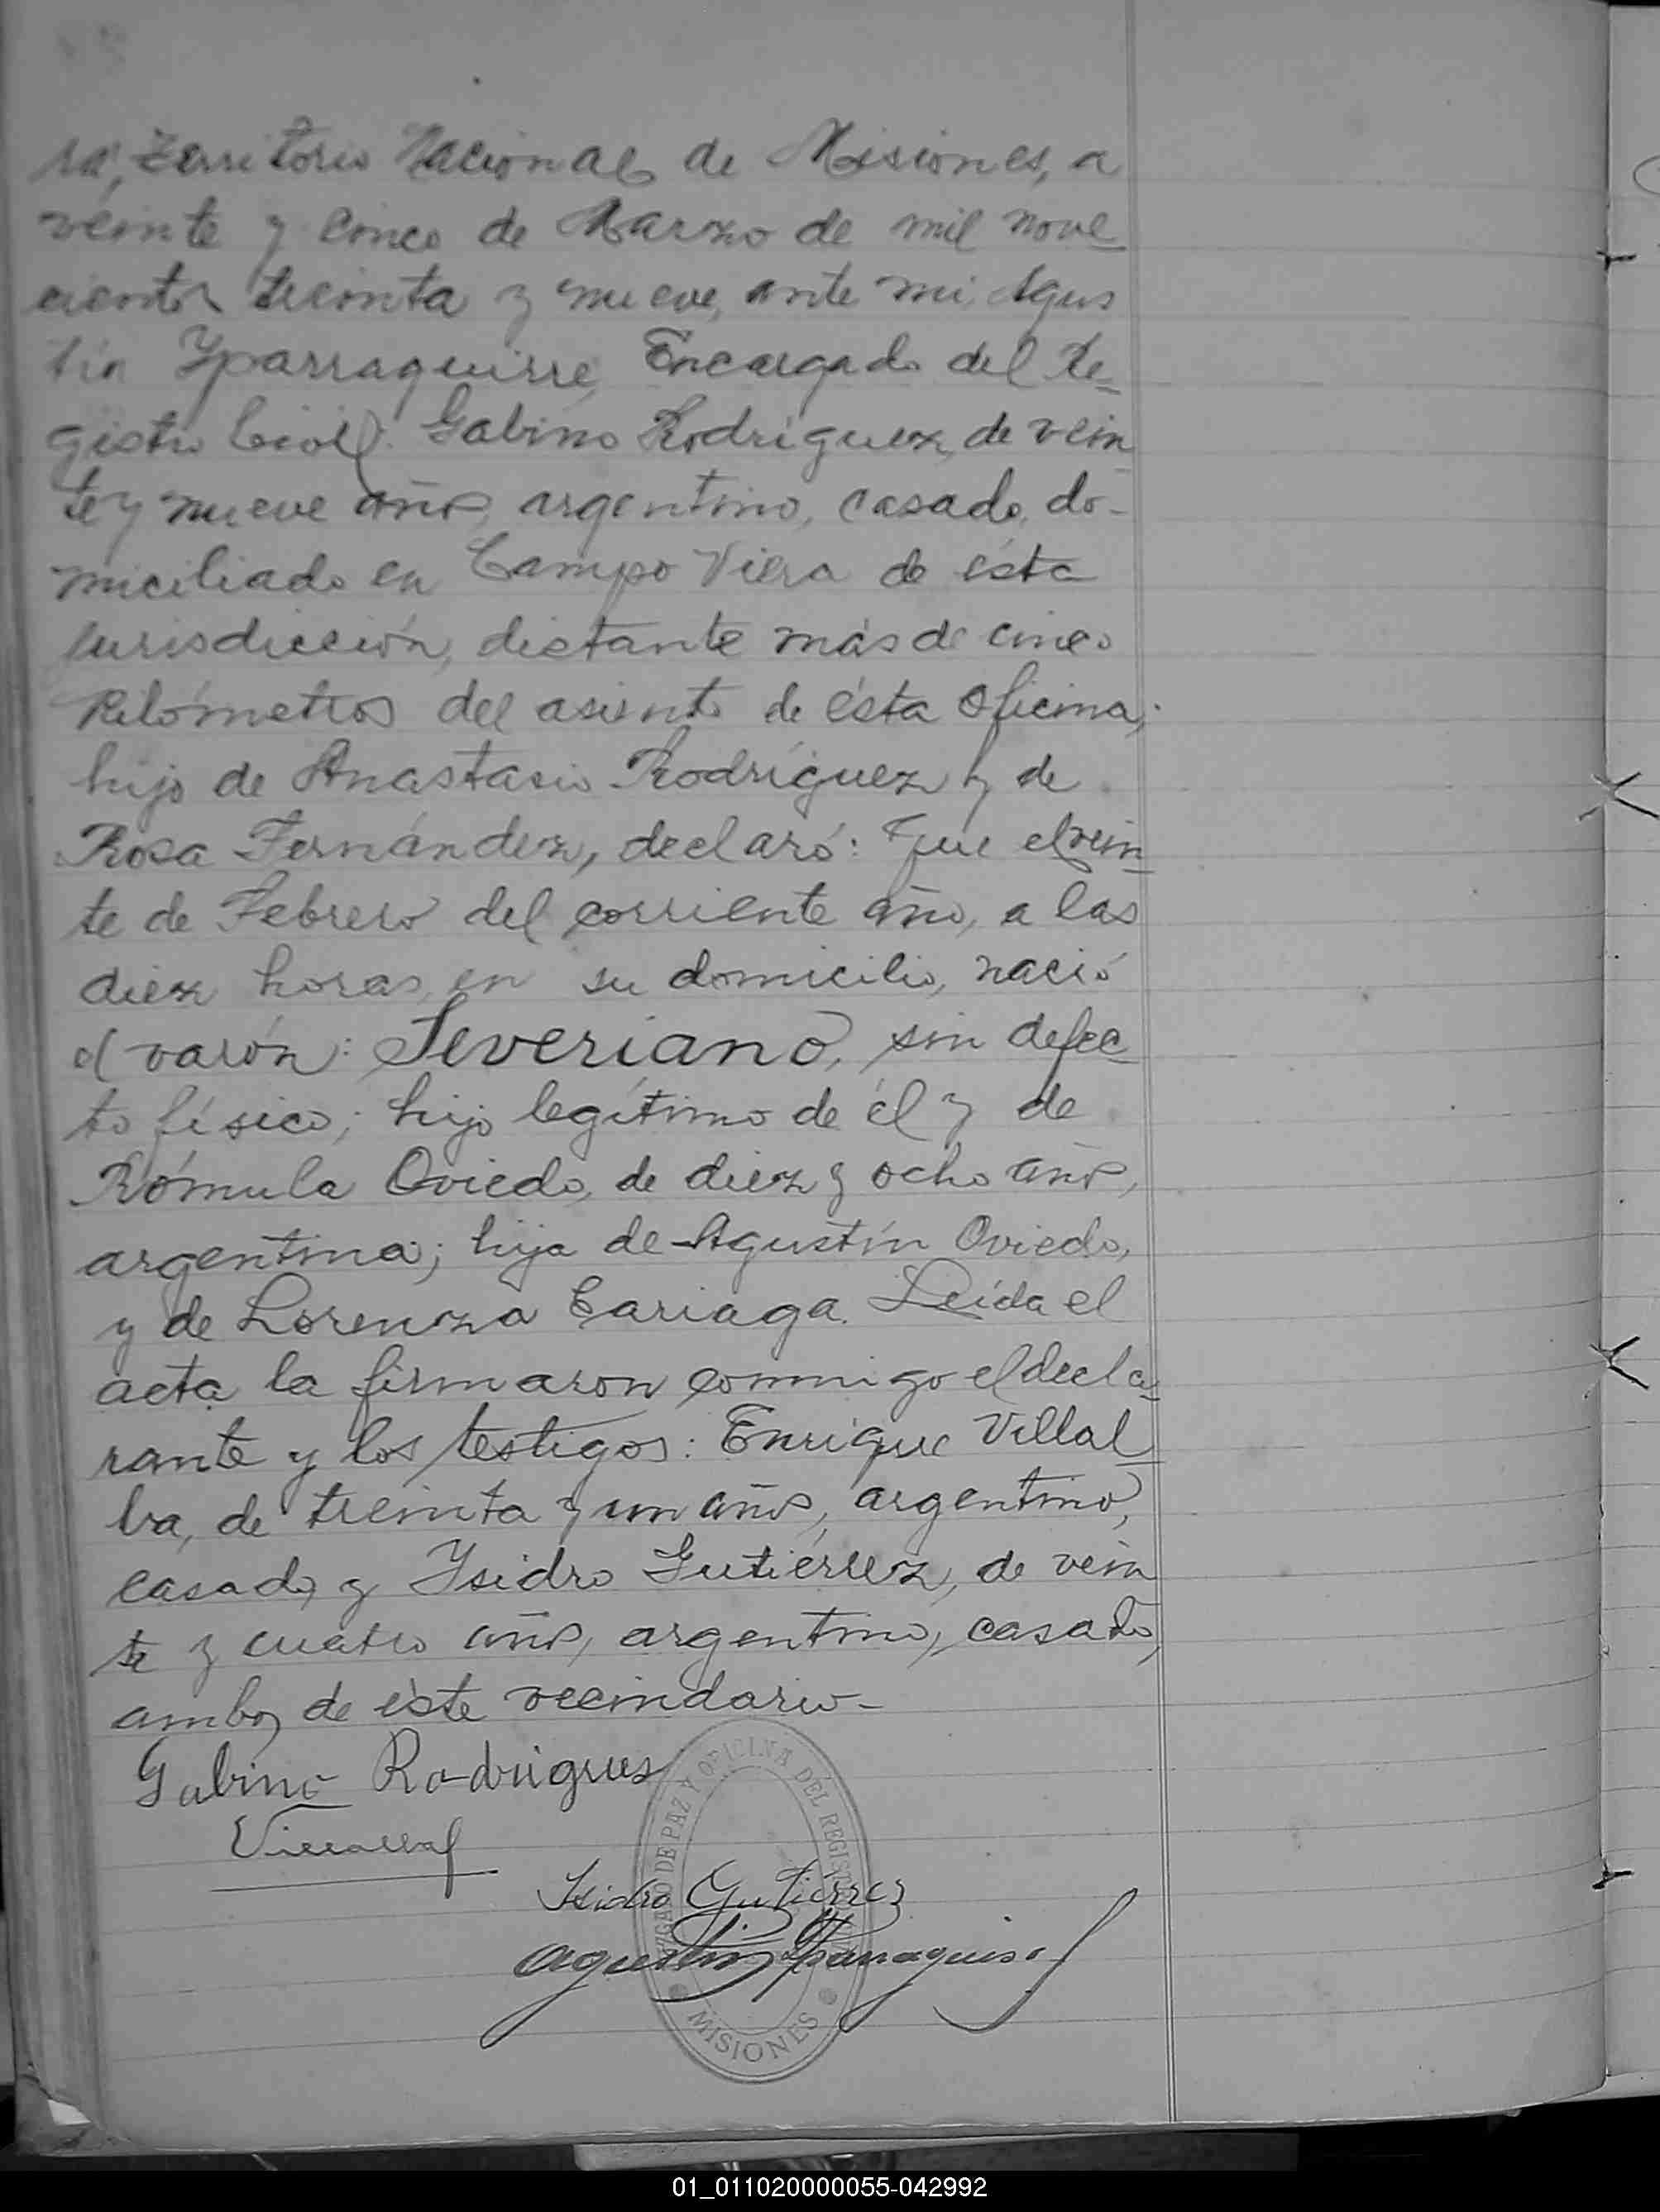 rá, Territorio Nacional de Misiones, a
veinte y cinco de Marzo de mil nove
cientos treinta y nueve, ante mi, Agus
tín Yparraguirre, Encargado del Re-
gistro Civil: Gabino Rodríguez, de vein
te y nueve años, argentino, casado, do-
miciliado en Campo Viera de ésta
jurisdicción, distante más de cinco
kilómetros del asiento de ésta Oficina;
hijo de Anastasio Rodríguez y de
Rosa Fernández, declaró: Que el vein
te de Febrero del corriente año, a las
diez horas, en su domicilio, nació
el varón: Severiano, sin defec
to físico; hijo legítimo de él y de
Rómula Oviedo, de diez y ocho años,
argentina; hija de Agustín Oviedo,
y de Lorenza Cariaga. Leída el
acta la firmaron conmigo el decla
rante y los testigos: Enrique Villal
ba, de treinta y un años, argentino,
casado, y Ysidro Gutiérrez, de vein
te y cuatro años, argentino, casado,
ambos de éste vecindario-
Gabino Rodrigues
Isidro Gutierrez
Agustin Yparraguirre
JUZGADO DE PAZ Y OFICINA DEL REGISTRO CIVIL
MISIONES
01_011020000055-042992